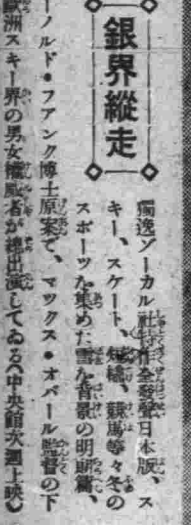 銀界縱走
獨逸ゾーカル社特作全發聲日本版、ス
キー、スケート、短橇、競馬等々冬の
スポーツを集めた雪を背景の明朗篇、
ーノルド・フアンク博士原案で、マツクス・オバール監督の下
歐洲スキー界の男女權威者が總出演してゐる(中央館次週上映)